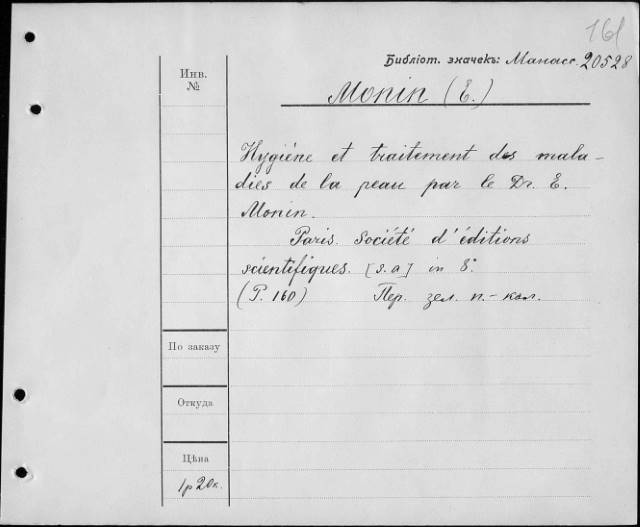 161
Библіот. значекъ: Манасс. 20528
Инв.
№
Monin (E.)
Hygiène et traitement des mala-
dies de la peau par le Dr. E.
Monin.
Paris. Société d'éditions
scientifiques. [s.a] in 8°.
(P. 160) Пер. зел. п.-кол.
По заказу
Откуда
Цѣна
1р 20к.